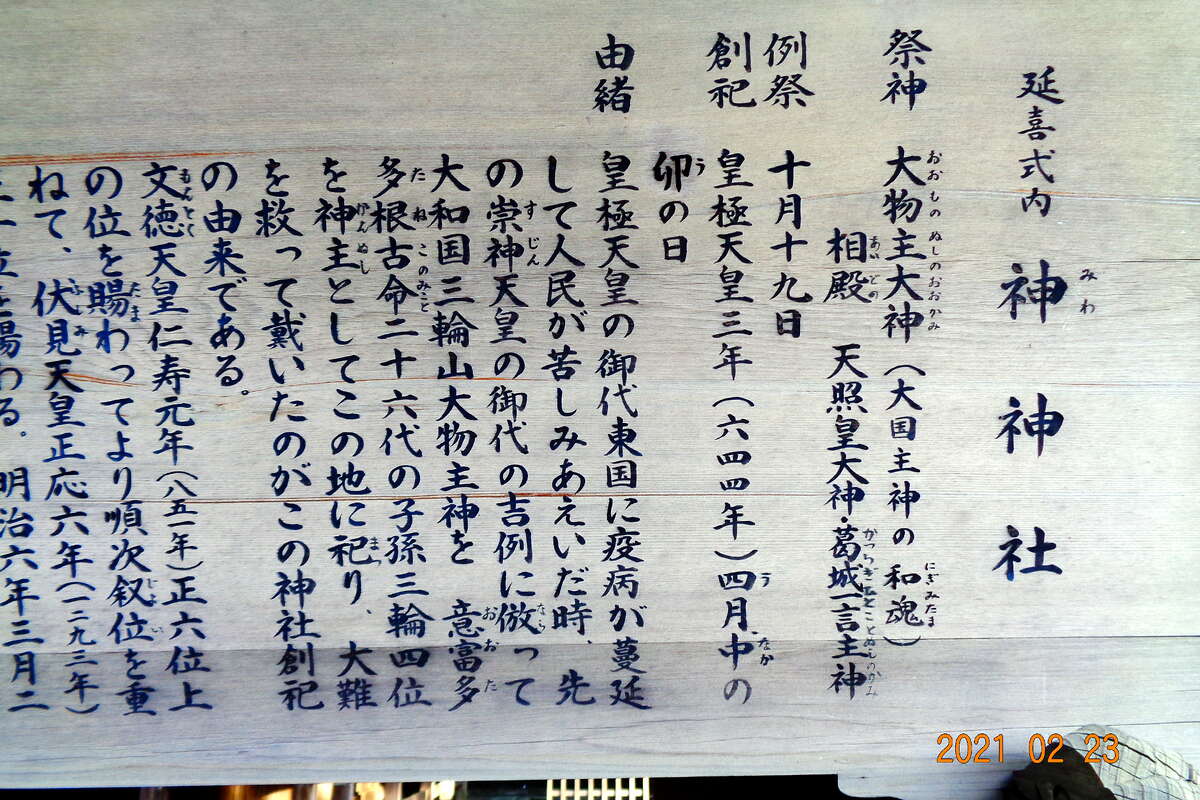 延喜式内 神神社
祭神 大物主大神(大国主神の和魂)
相殿 天照皇大神・葛城一言主神
例祭 十月十九日
創祀 皇極天皇三年(六四四年)四月、中の
卯の日
由緒 皇極天皇の御代東国に疫病が蔓延
して人民が苦しみあえいだ時、先
の崇神天皇の御代の吉例に倣って
大和国三輪山大物主神を 意富多
多根古命二十六代の子孫三輪四位
を神主としてこの地に祀り、大難
を救って戴いたのがこの神社創祀
の由来である。
文徳天皇仁寿元年(八五一年)正六位上
の位を賜わってより順次叙位を重
ねて、伏見天皇正応六年(一二九三年)
位を賜わる。明治六年三月二
2021 02 23